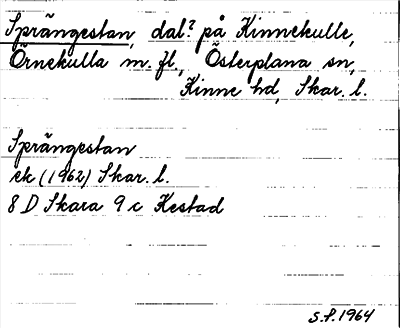 Sprängestan, dal? på Kinnekulle,
Örnekulla m. fl., Österplana sn,
Kinne hd, Skar. l.
Sprängestan
ek (1962) Skar. l.
8 D Skara 9 c Kestad
S.F. 1964